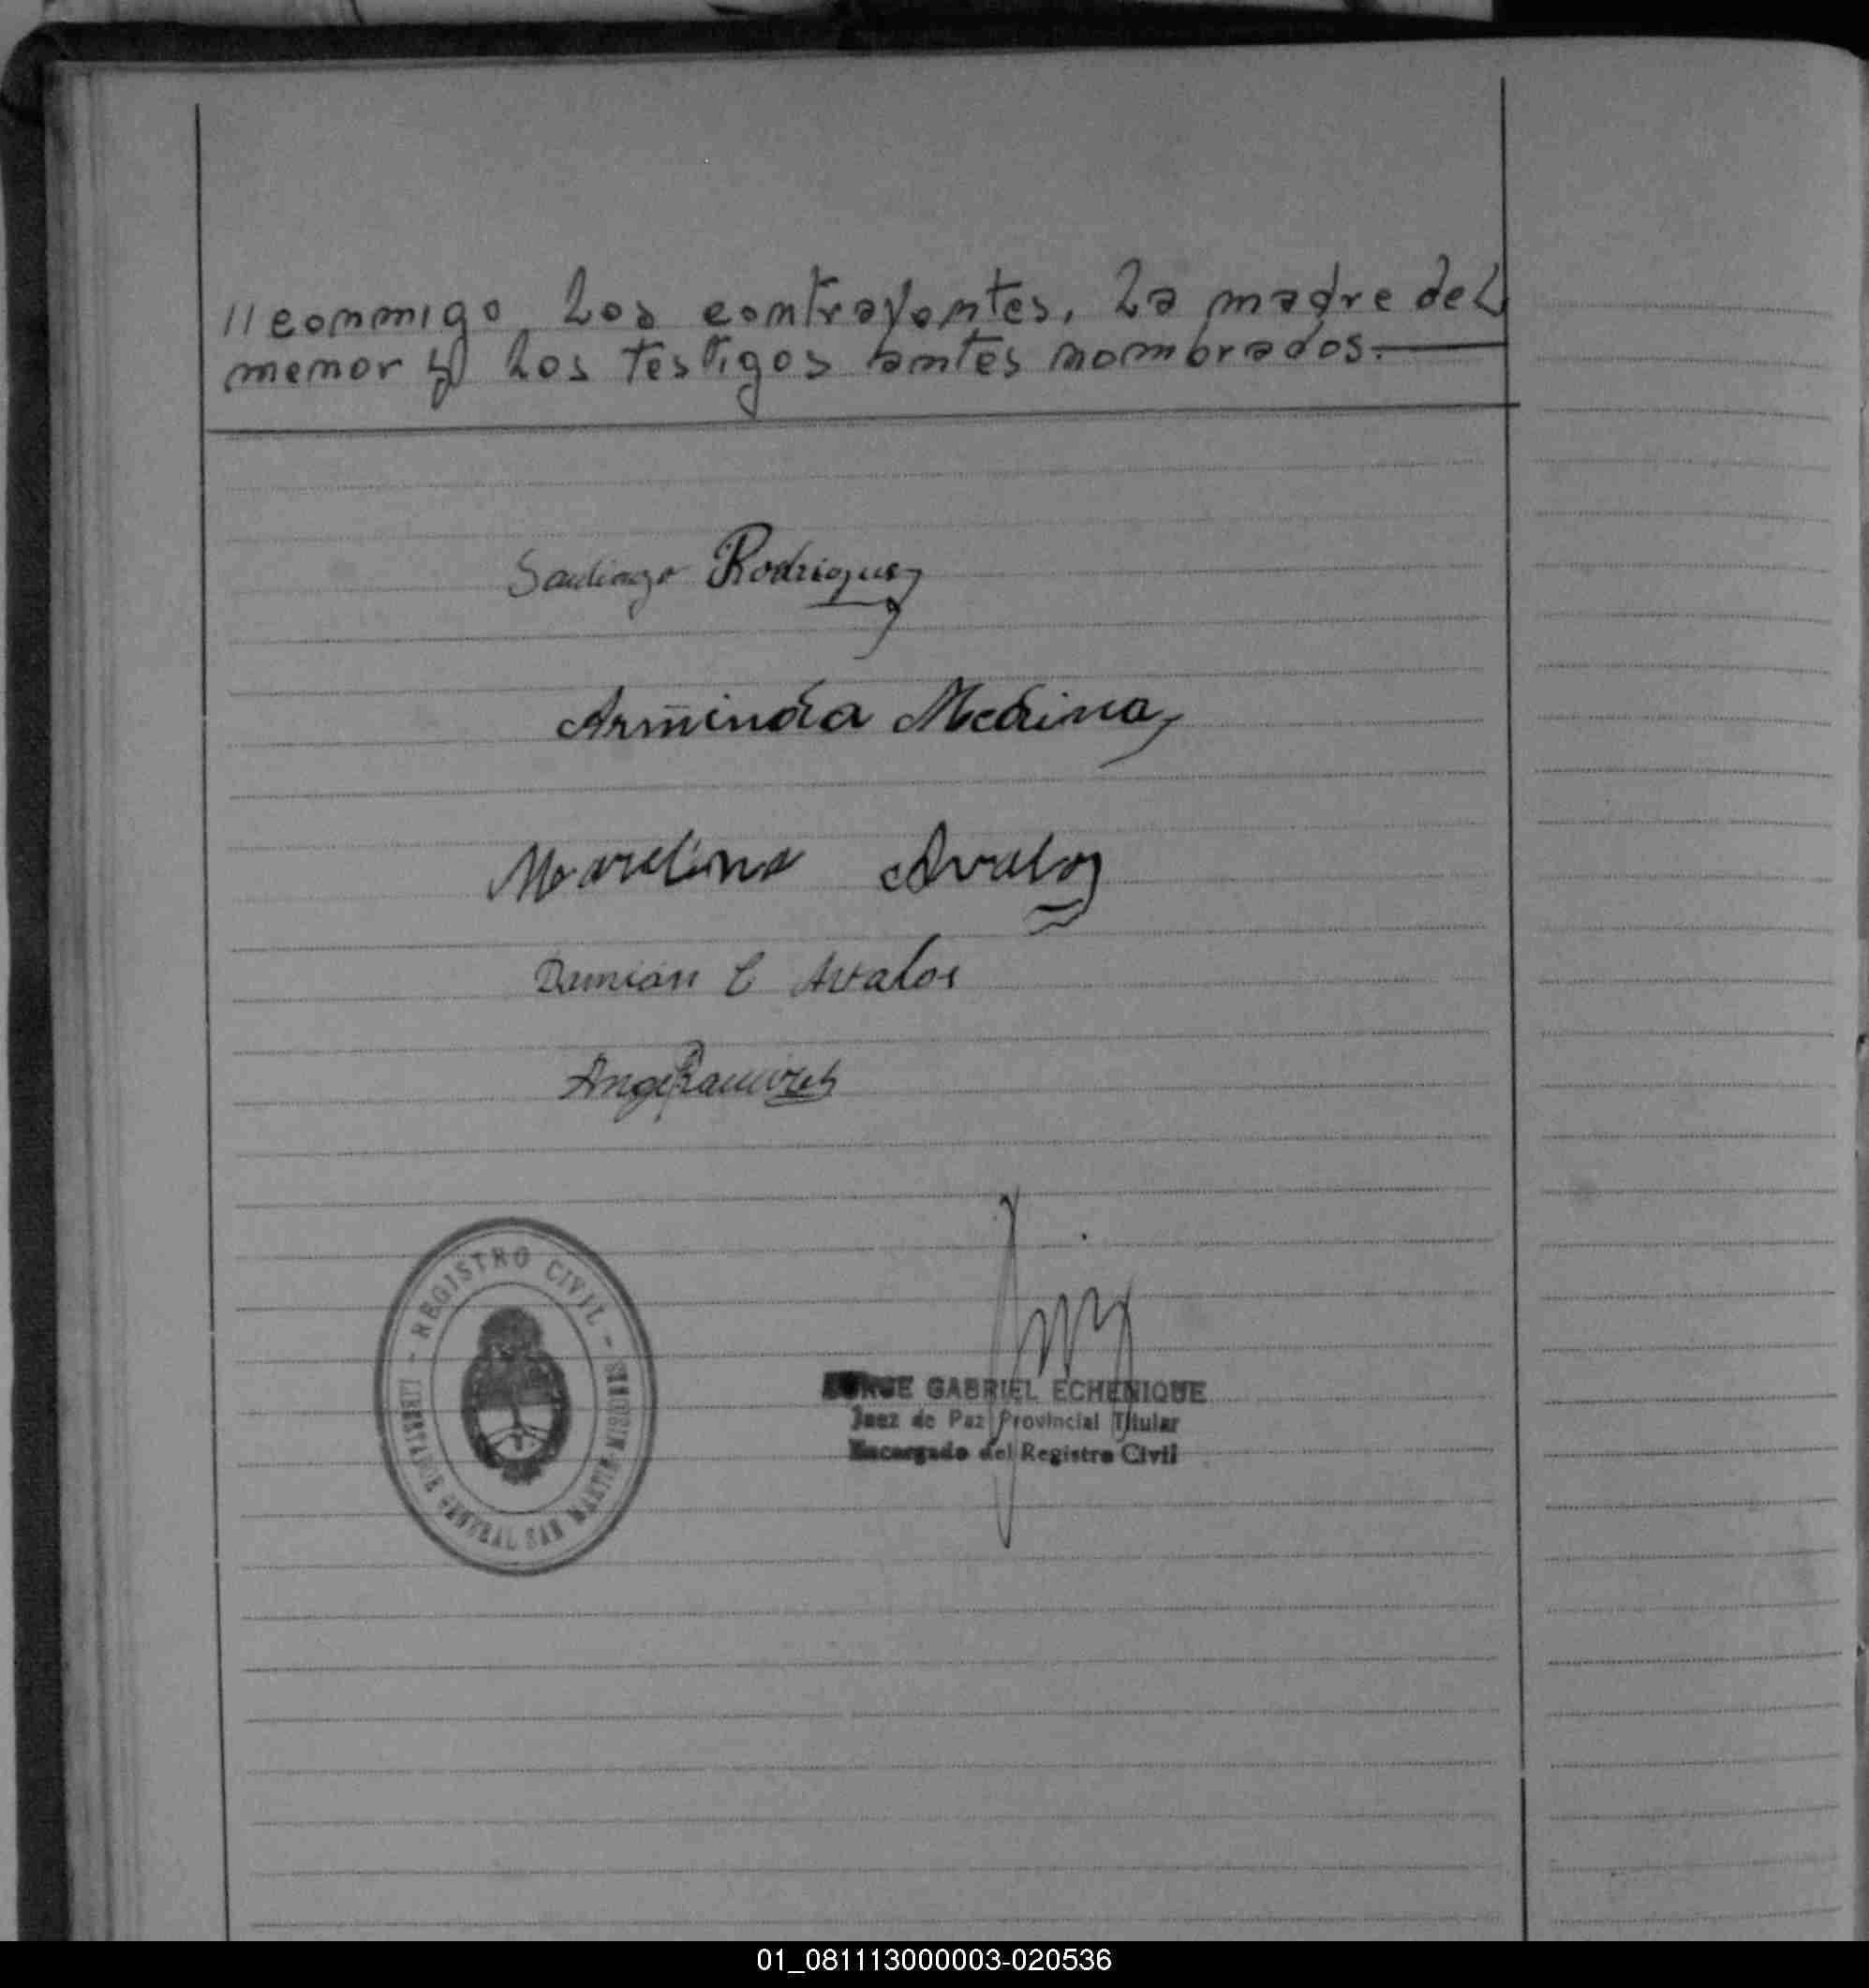 //conmigo los contrayentes, la madre del
menor y los testigos antes nombrados.
Santiago Rodriguez
Arminda Medina
Marcelina Avalos
Damián C Avalos
Angel Ramirez
REGISTRO CIVIL - LIBERTADOR GENERAL SAN MARTIN - MISIONES -
JORGE GABRIEL ECHENIQUE
Juez de Paz Provincial Titular
Encargado del Registro Civil
01_081113000003-020536